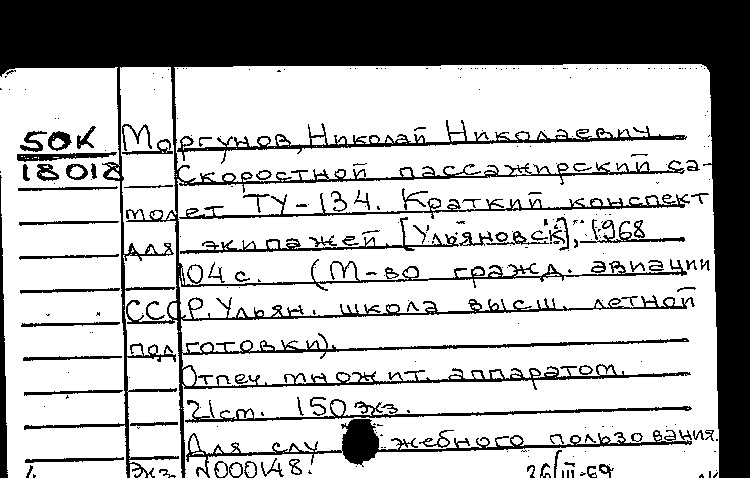 50К Моргунов, Николай Николаевич.
18018 Скоростной пассажирский са-
молет ТУ-134. Краткий конспект
для экипажей. [Ульяновск], 1968
104 с. (М-во гражд. авиации
СССР. Ульян. школа высш. летной
подготовки).
Отпеч. множит. аппаратом.
21 ст. 150 экз.
Для служебного пользования.
Экз. 26/III-69